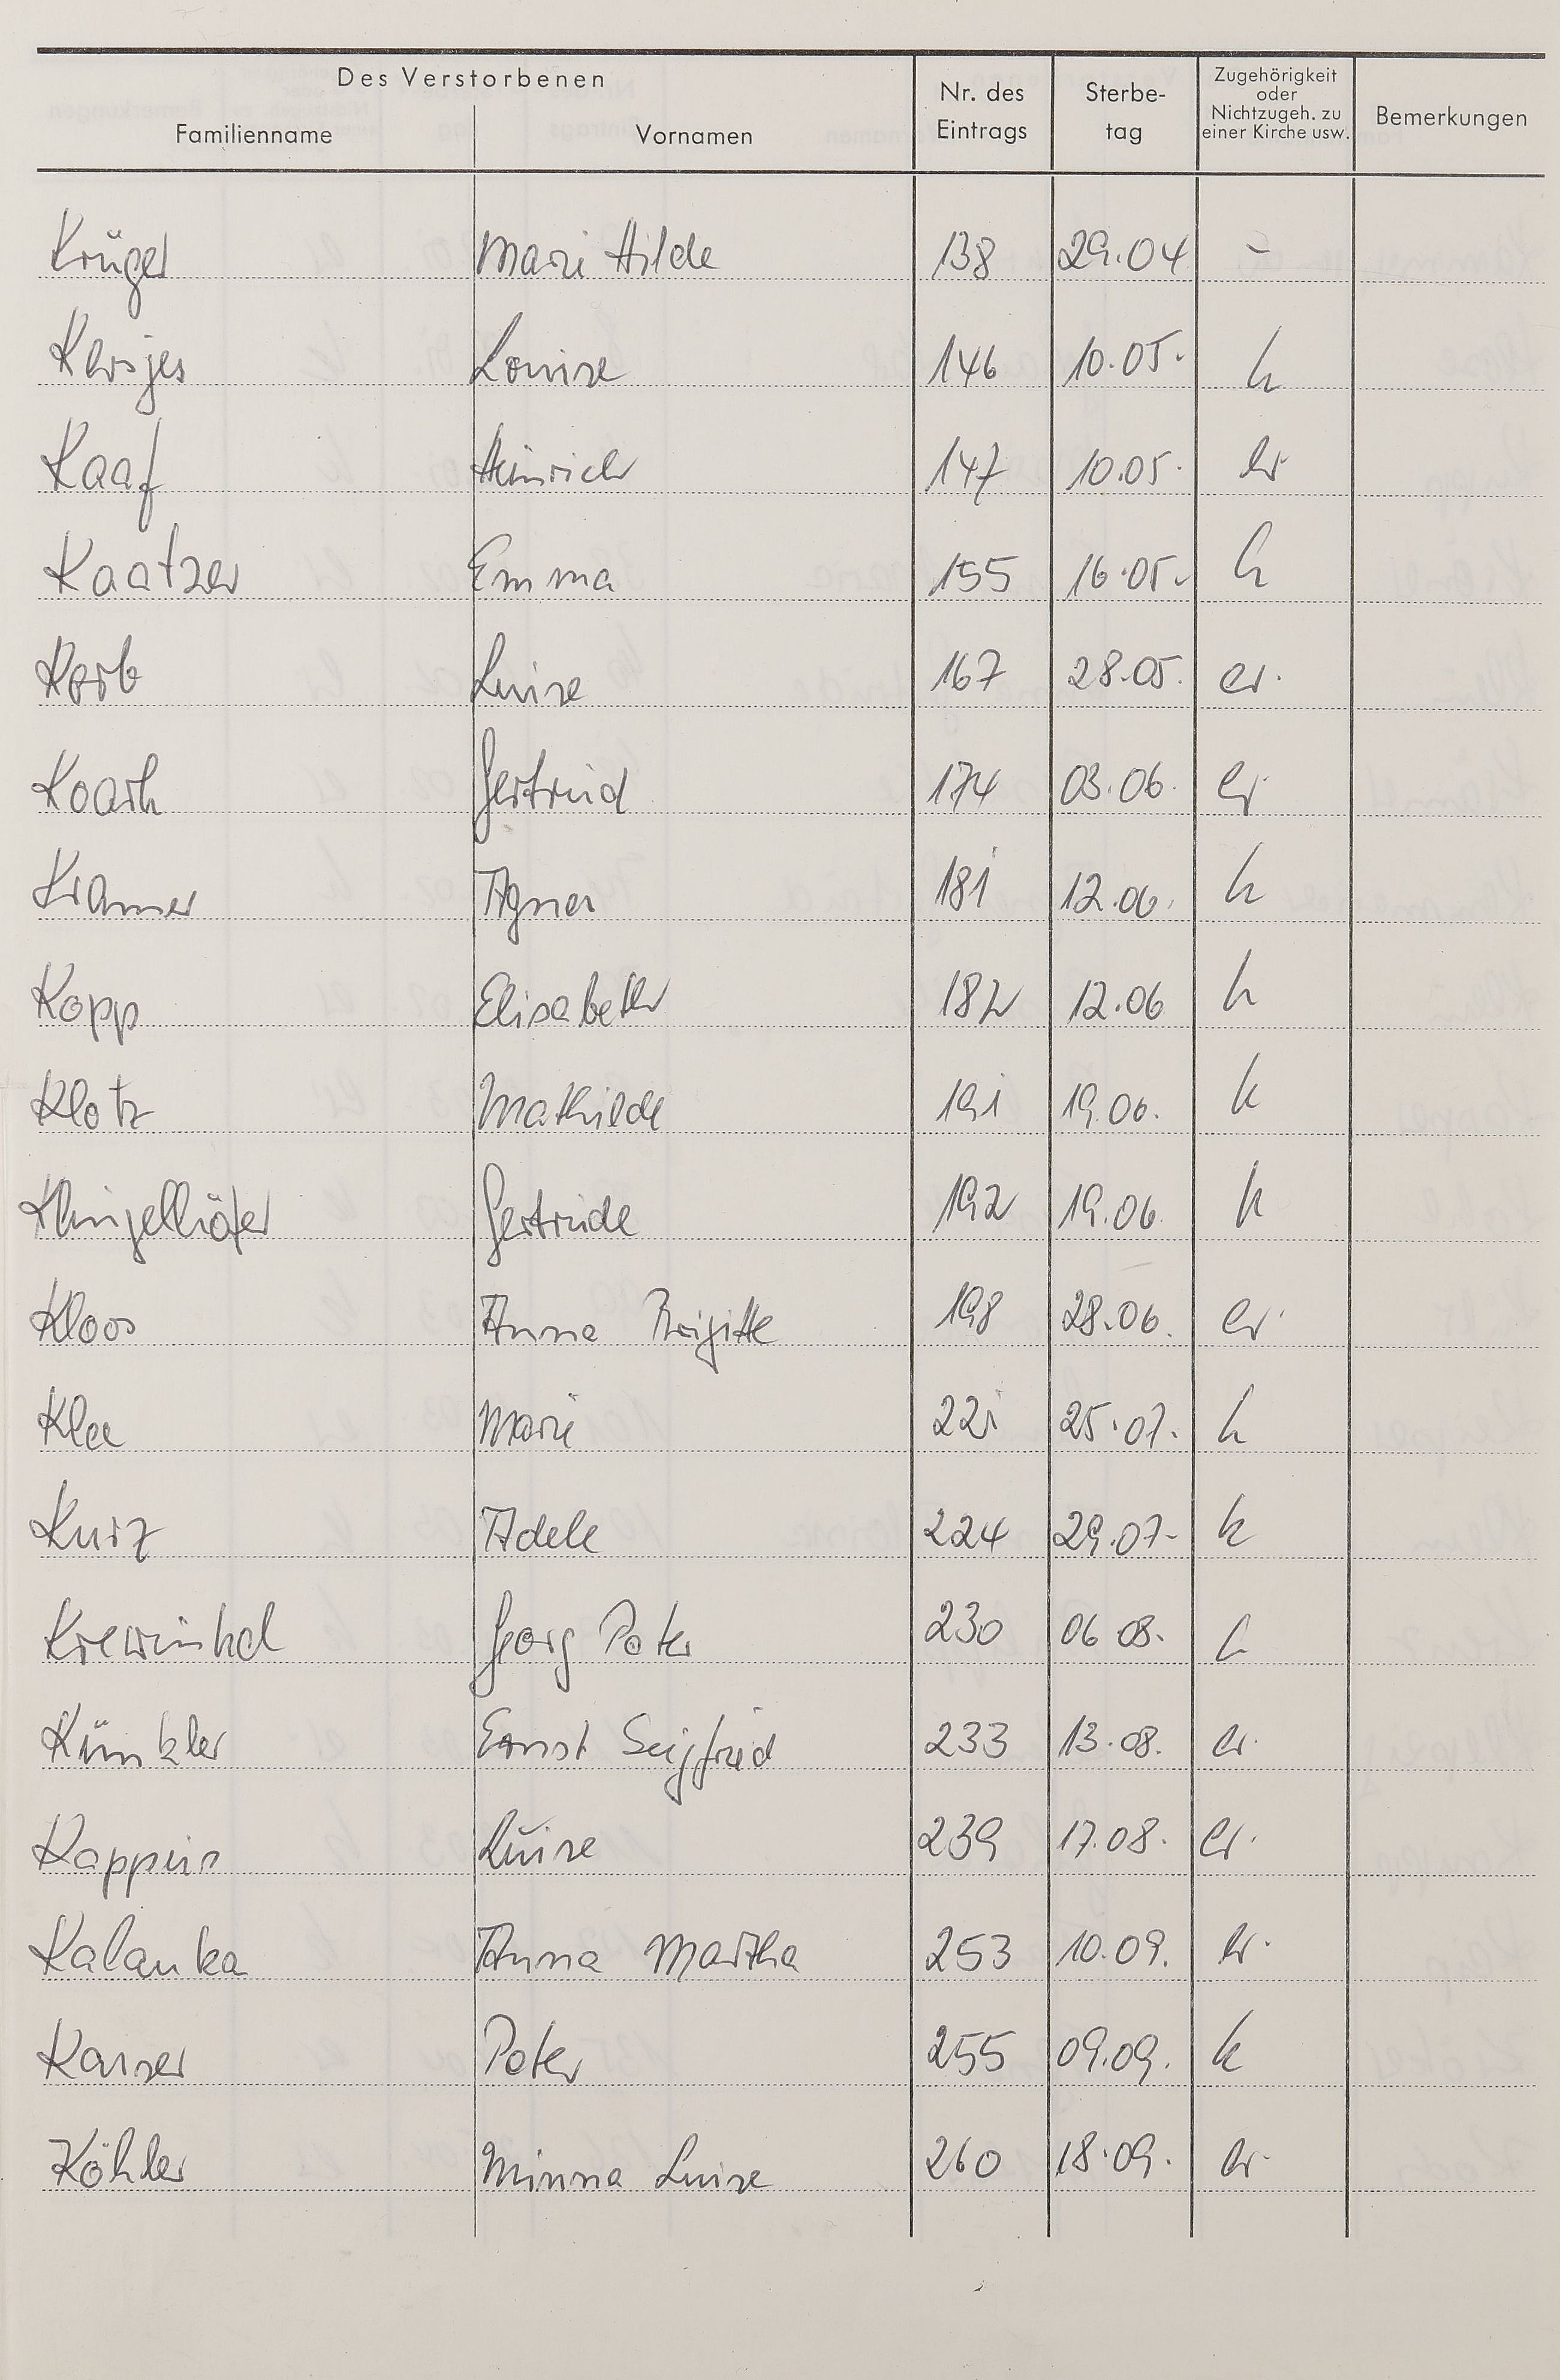 Des Verstorbenen
Familienname Vornamen Nr. des Eintrags Sterbe-tag Zugehörigkeit oder Nichtzugeh. zu einer Kirche usw. Bemerkungen
Krüger Marie Hilde 138 29.04 -
Louise 146 10.05. k
Kaaf Heinrich 147 10.05. ev.
Kaatzer Emma 155 16.05. k
Korb Luise 167 28.05. ev.
Gertrud 174 03.06. ev.
Kramer Agnes 181 12.06. k
Kopp Elisabeth 182 12.06 k
Klotz Mathilde 191 19.06. k
Klingelhöfer Gertrude 192 19.06. k
Kloos Anna Brigitte 198 28.06. ev.
Klee Marie 221 25.07. k
Kurz Adele 224 29.07. k
Krewinkel Georg Peter 230 06 08. k
Künkler Ernst Seigfried 233 13.08. ev.
Kappus Luise 239 17.08. ev.
Kalanka Anna Martha 253 10.09. ev.
Kaiser Peter 255 09.09. k
Köhler Minna Luise 260 18.09. ev.